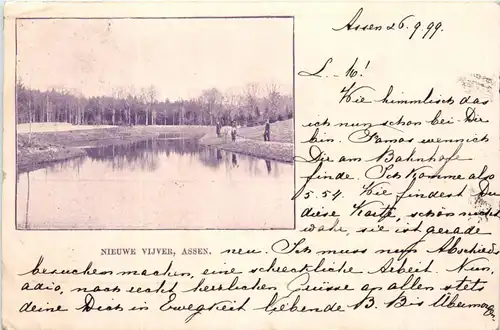 Assen 26.9.99.
L. !
Wie himmlisch das
ich nun schon bei Die
bin. Famos wenn ich
Die am Bahnhofe
finde. Ich komme also
5.54. Wie findest Du
diese Karte, schön nicht
wahr, sie ist gerade
NIEUWE VIJVER, ASSEN.
neu. Ich muss nun Abschieds
besuchen machen, eine schreckliche Arbeit. Nun,
adio, noch recht herzlichen Grüsse an allen stets
deine Dich in Ewigkeit liebende B. Bis